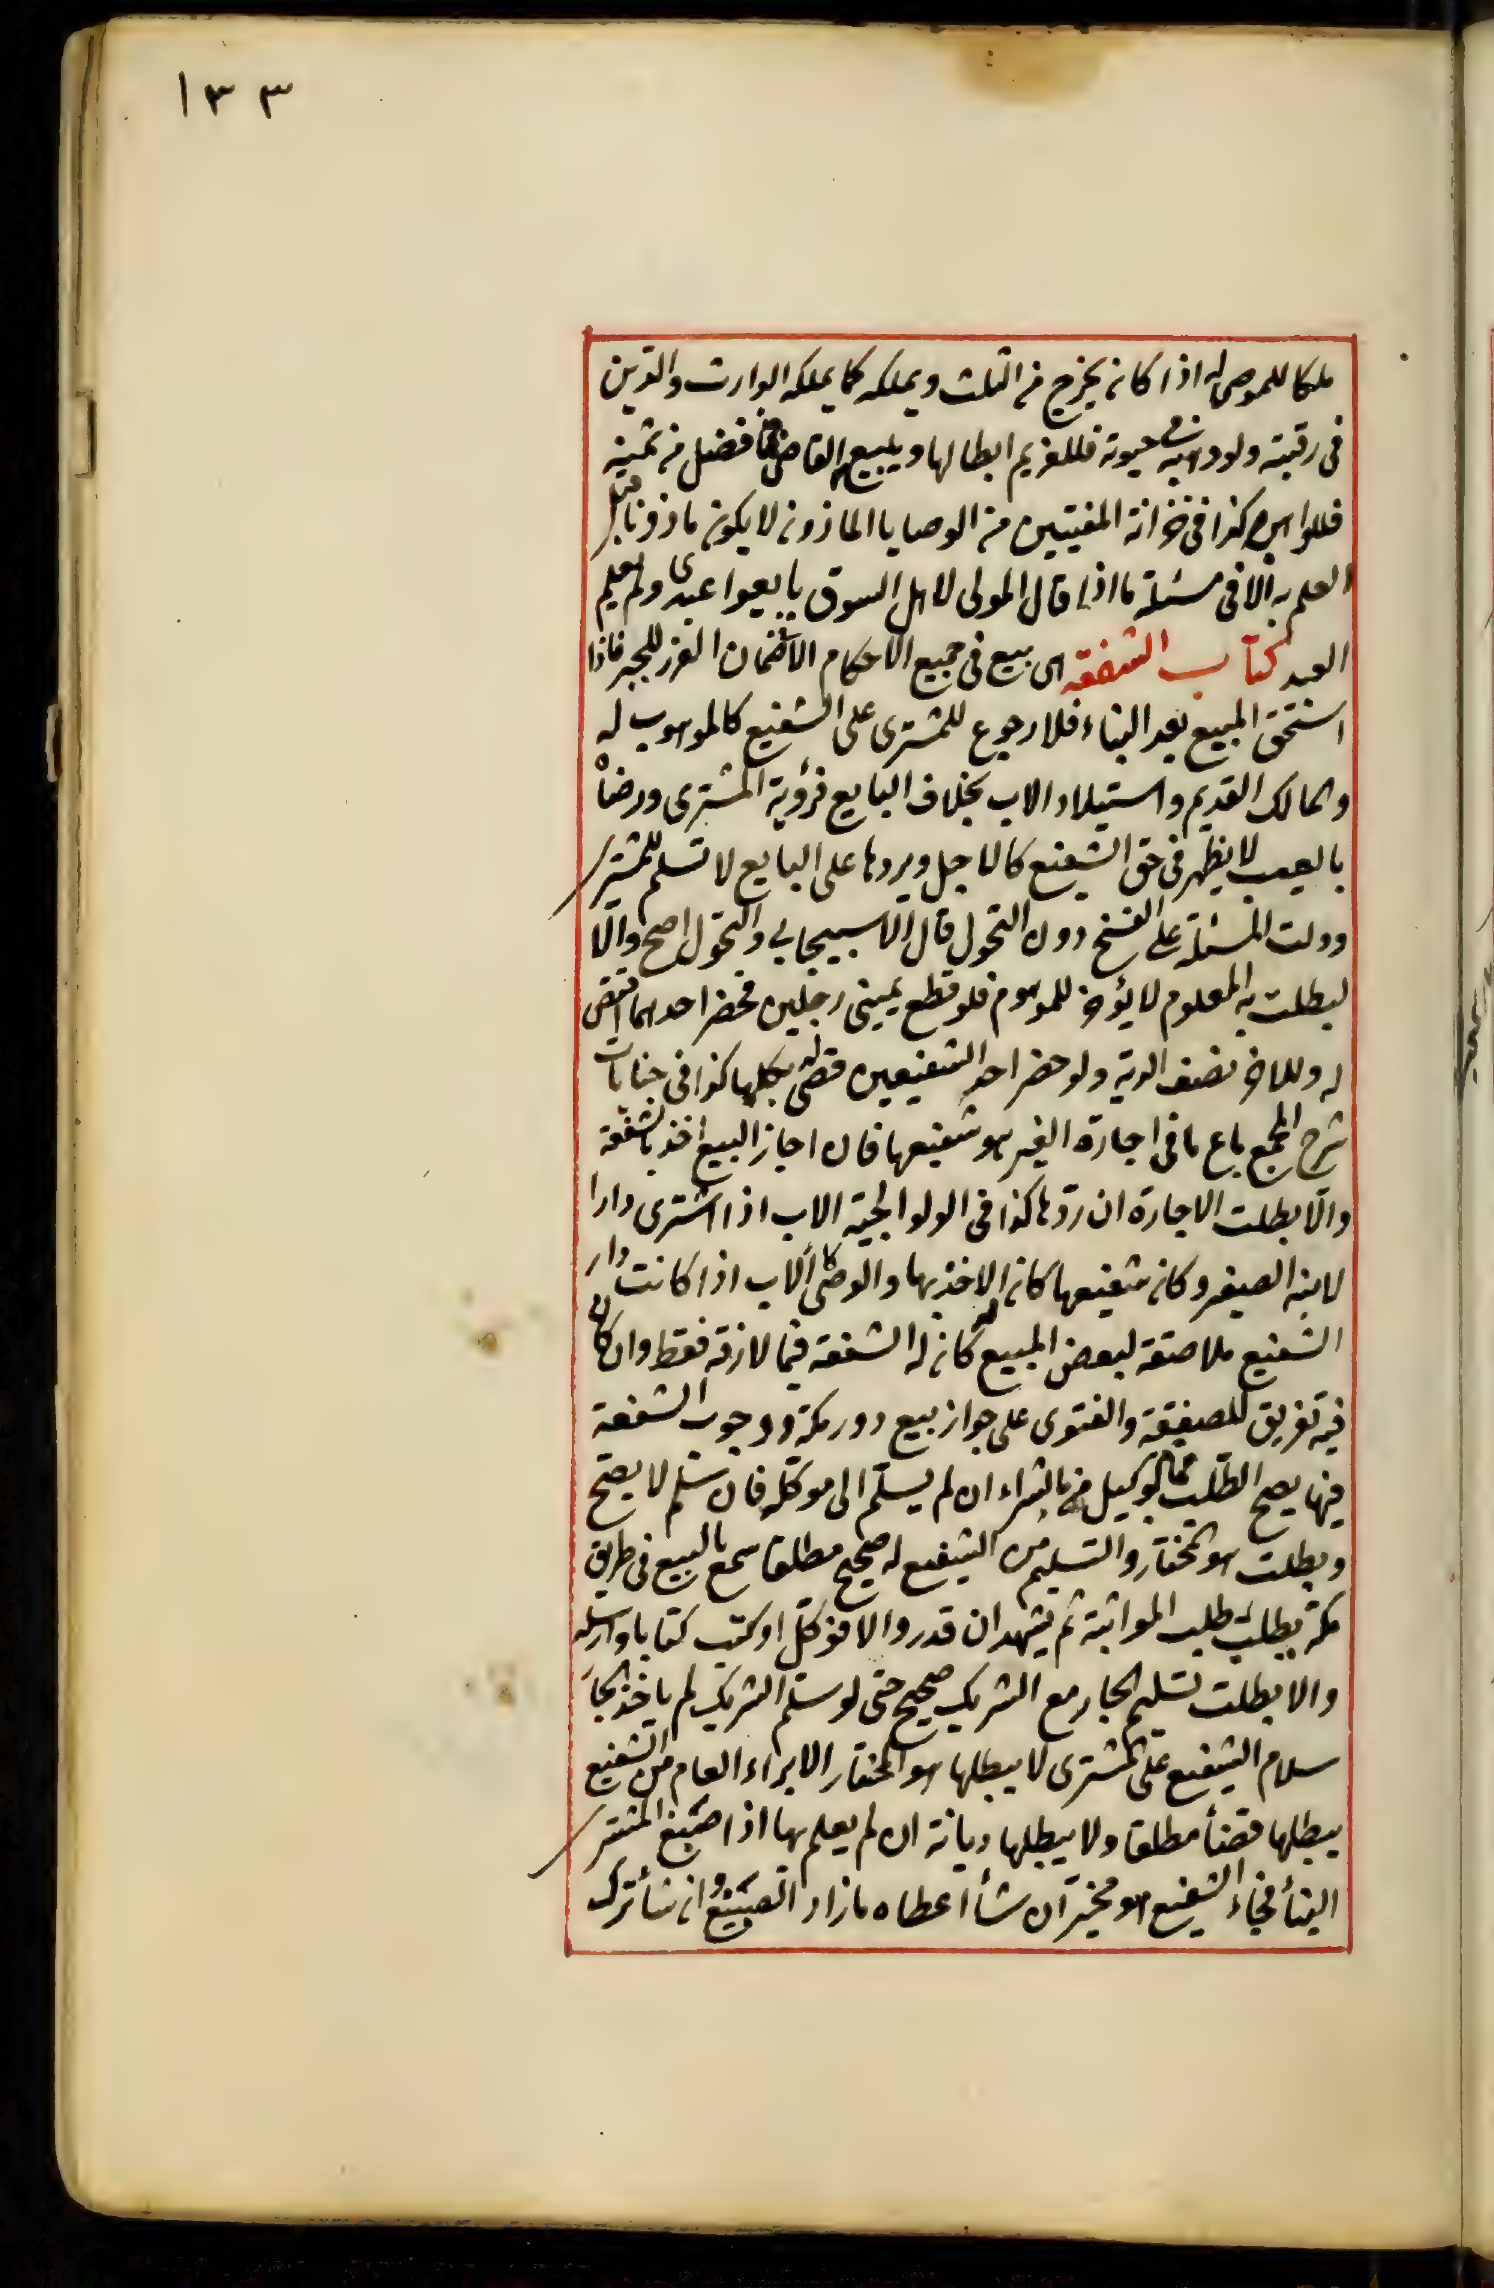 ١٣٣
ملكا للموصى له اذا كان يخرج من الثلث ويملكه كما يملكه الوارث والدين
فى رقبته ولو وهبه فى حيوته فللغريم ابطالها ويبيعه القاضى فما فضل من ثمنه
فللواهب كذا فى خزانة المفتيين من الوصايا المأذون لا يكون مأذونا قبل
العلم به الا فى مسئلة ما اذا قال المولى لاهل السوق بايعوا عبدى ولم يعلم
العبد كتاب الشفعة هى بيع فى جميع الاحكام الا ضمان الغرر للجبر فاذا
استحق المبيع بعد البناء فلا رجوع للمشترى على الشفيع كالموهوب له
والمالك القديم واستيلاد الاب بخلاف البايع فرؤية المشترى ورضاه
بالعيب لا يظهر فى حق الشفيع كالاجل ويردها على البايع لا تسلم للمشترى
ودلت المسئلة على الفسخ دون التحول قال الاسبيجابى والتحول اصح والا
لبطلت به المعلوم لا يؤخر للموهوم فلو قطع يمينى رجلين فحضر احدهما اقتص
له وللاخر نصف الدية ولو حضر احد الشفيعين قضى له بكلها كذا فى جنايات
شرح المجمع باع ما فى اجارة الغير هو شفيعها فان اجاز البيع اخذ بالشفعة
والا بطلت الاجارة ان ردها كذا فى الولوالجية الاب اذا اشترى دارا
لابنه الصغير وكان شفيعها كان له الاخذ بها والوصى كالاب اذا كانت دار
الشفيع ملاصقة لبعض المبيع كان له الشفعة فيما لازقه فقط وان كان
فيه تفريق للصفقة والفتوى على جواز بيع دور مكة ووجوب الشفعة
فيها يصح الطلب من الوكيل بالشراء ان لم يسلم الى موكله فان سلم لا يصح
وبطلت هو المختار والتسليم من الشفيع له صحيح مطلقا سمع بالبيع فى طريق
مكة يطلب طلب المواثبة ثم يشهد ان قدر والا فوكل او كتب كتابا وارسله
والا بطلت تسليم الجار مع الشريك صحيح حتى لو سلم الشريك لم ياخذ الجار
سلام الشفيع على المشترى لا يبطلها هو المختار الابراء العام من الشفيع
يبطلها قضاء مطلقا ولا يبطلها ديانة ان لم يعلم بها اذا صبغ المشترى
البناء فجاء الشفيع هو مخير ان شاء اعطاه ما زاد الصبغ وان شاء ترك